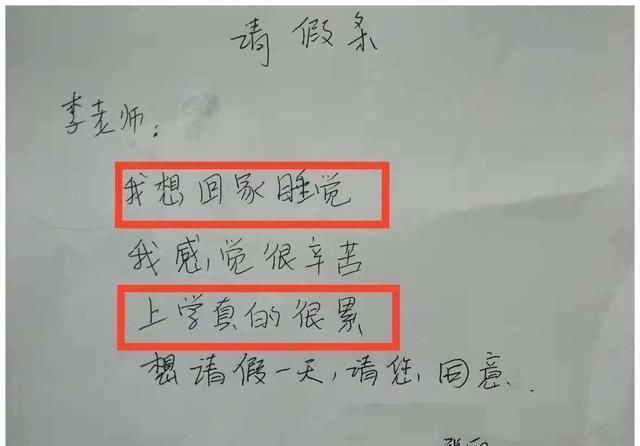 请假条
李老师：
我想回家睡觉
我感觉很辛苦
上学真的很累
想请假一天，请您同意.